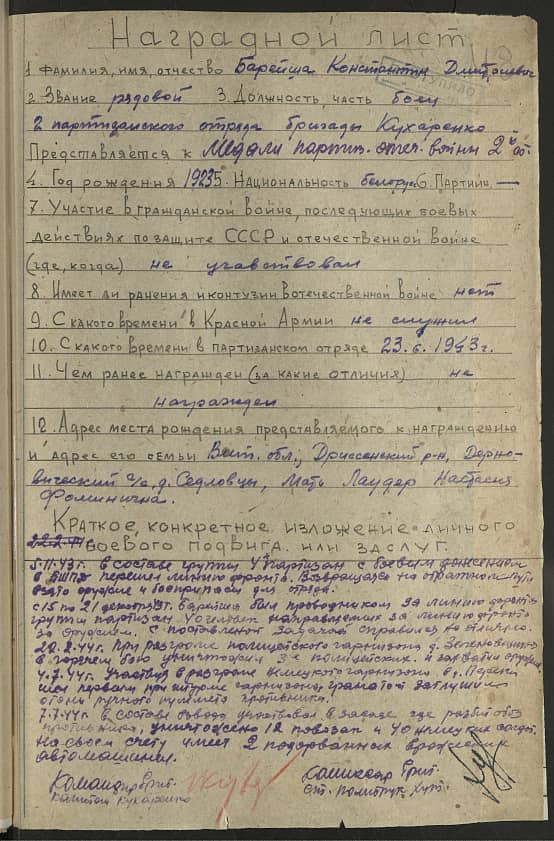 Наградной лист
1 Фамилия, имя, отчество Барейша Константин
2. Звание рядовой 3. Должность, часть боец
2 партизанского отряда бригады Кухаренко
Представляется к Медали партиз. отеч. войны 2й ст.
4. Год рождения 1923 5. Национальность белорус 6. Партийн. —
7. Участие в гражданской войне, последующих боевых
действиях по защите СССР и отечественной войне
(где, когда) не учавствовал
8. Имеет ли ранения и контузии в отечественной войне нет
9. С какого времени в Красной Армии не служил
10. С какого времени в партизанском отряде 23.6.1943 г.
11. Чем ранее награжден (за какие отличия) не
награжден
12. Адрес места рождения представляемого к награждению
и адрес его семьи Вит. обл., Дриссенский р-н, Дерно-
вический с/с, д. Седловцы, Мать Лаудер Настасия
Фоминична.
Краткое, конкретное изложение личного
боевого подвига или заслуг.
5.11.43 г. в составе группы 4 партизан с боевым донесением
в БШПД перешел линию фронта. Возвращаясь на обратном пути
взято оружие и боеприпасы для отряда.
с 15 по 21 декабря 43 г. Барейша был проводником за линию фронта
группы партизан 40 человек направляемых за линию фронта
за оружием. С поставленой задачой справился на отлично.
При разгроме полицейского гарнизона д.
в горячем бою уничтожил 3-х полицейских и захватил оружие
4.7.44 г. Участвуя в разгроме немецкого гарнизона в д.
первым при штурме гарнизона, гранатой заглушил
огонь ручного пулемета противника.
7.7.44 г. в составе взвода участвовал в засаде где разбит обоз
противника, уничтожено 12 повозок и 40 немецких солдат.
На своем счету имеет 2 подорванных вражеских
автомашины.
Командир бриг. Комиссар бриг.
Капитан Кухаренко ст. политрук